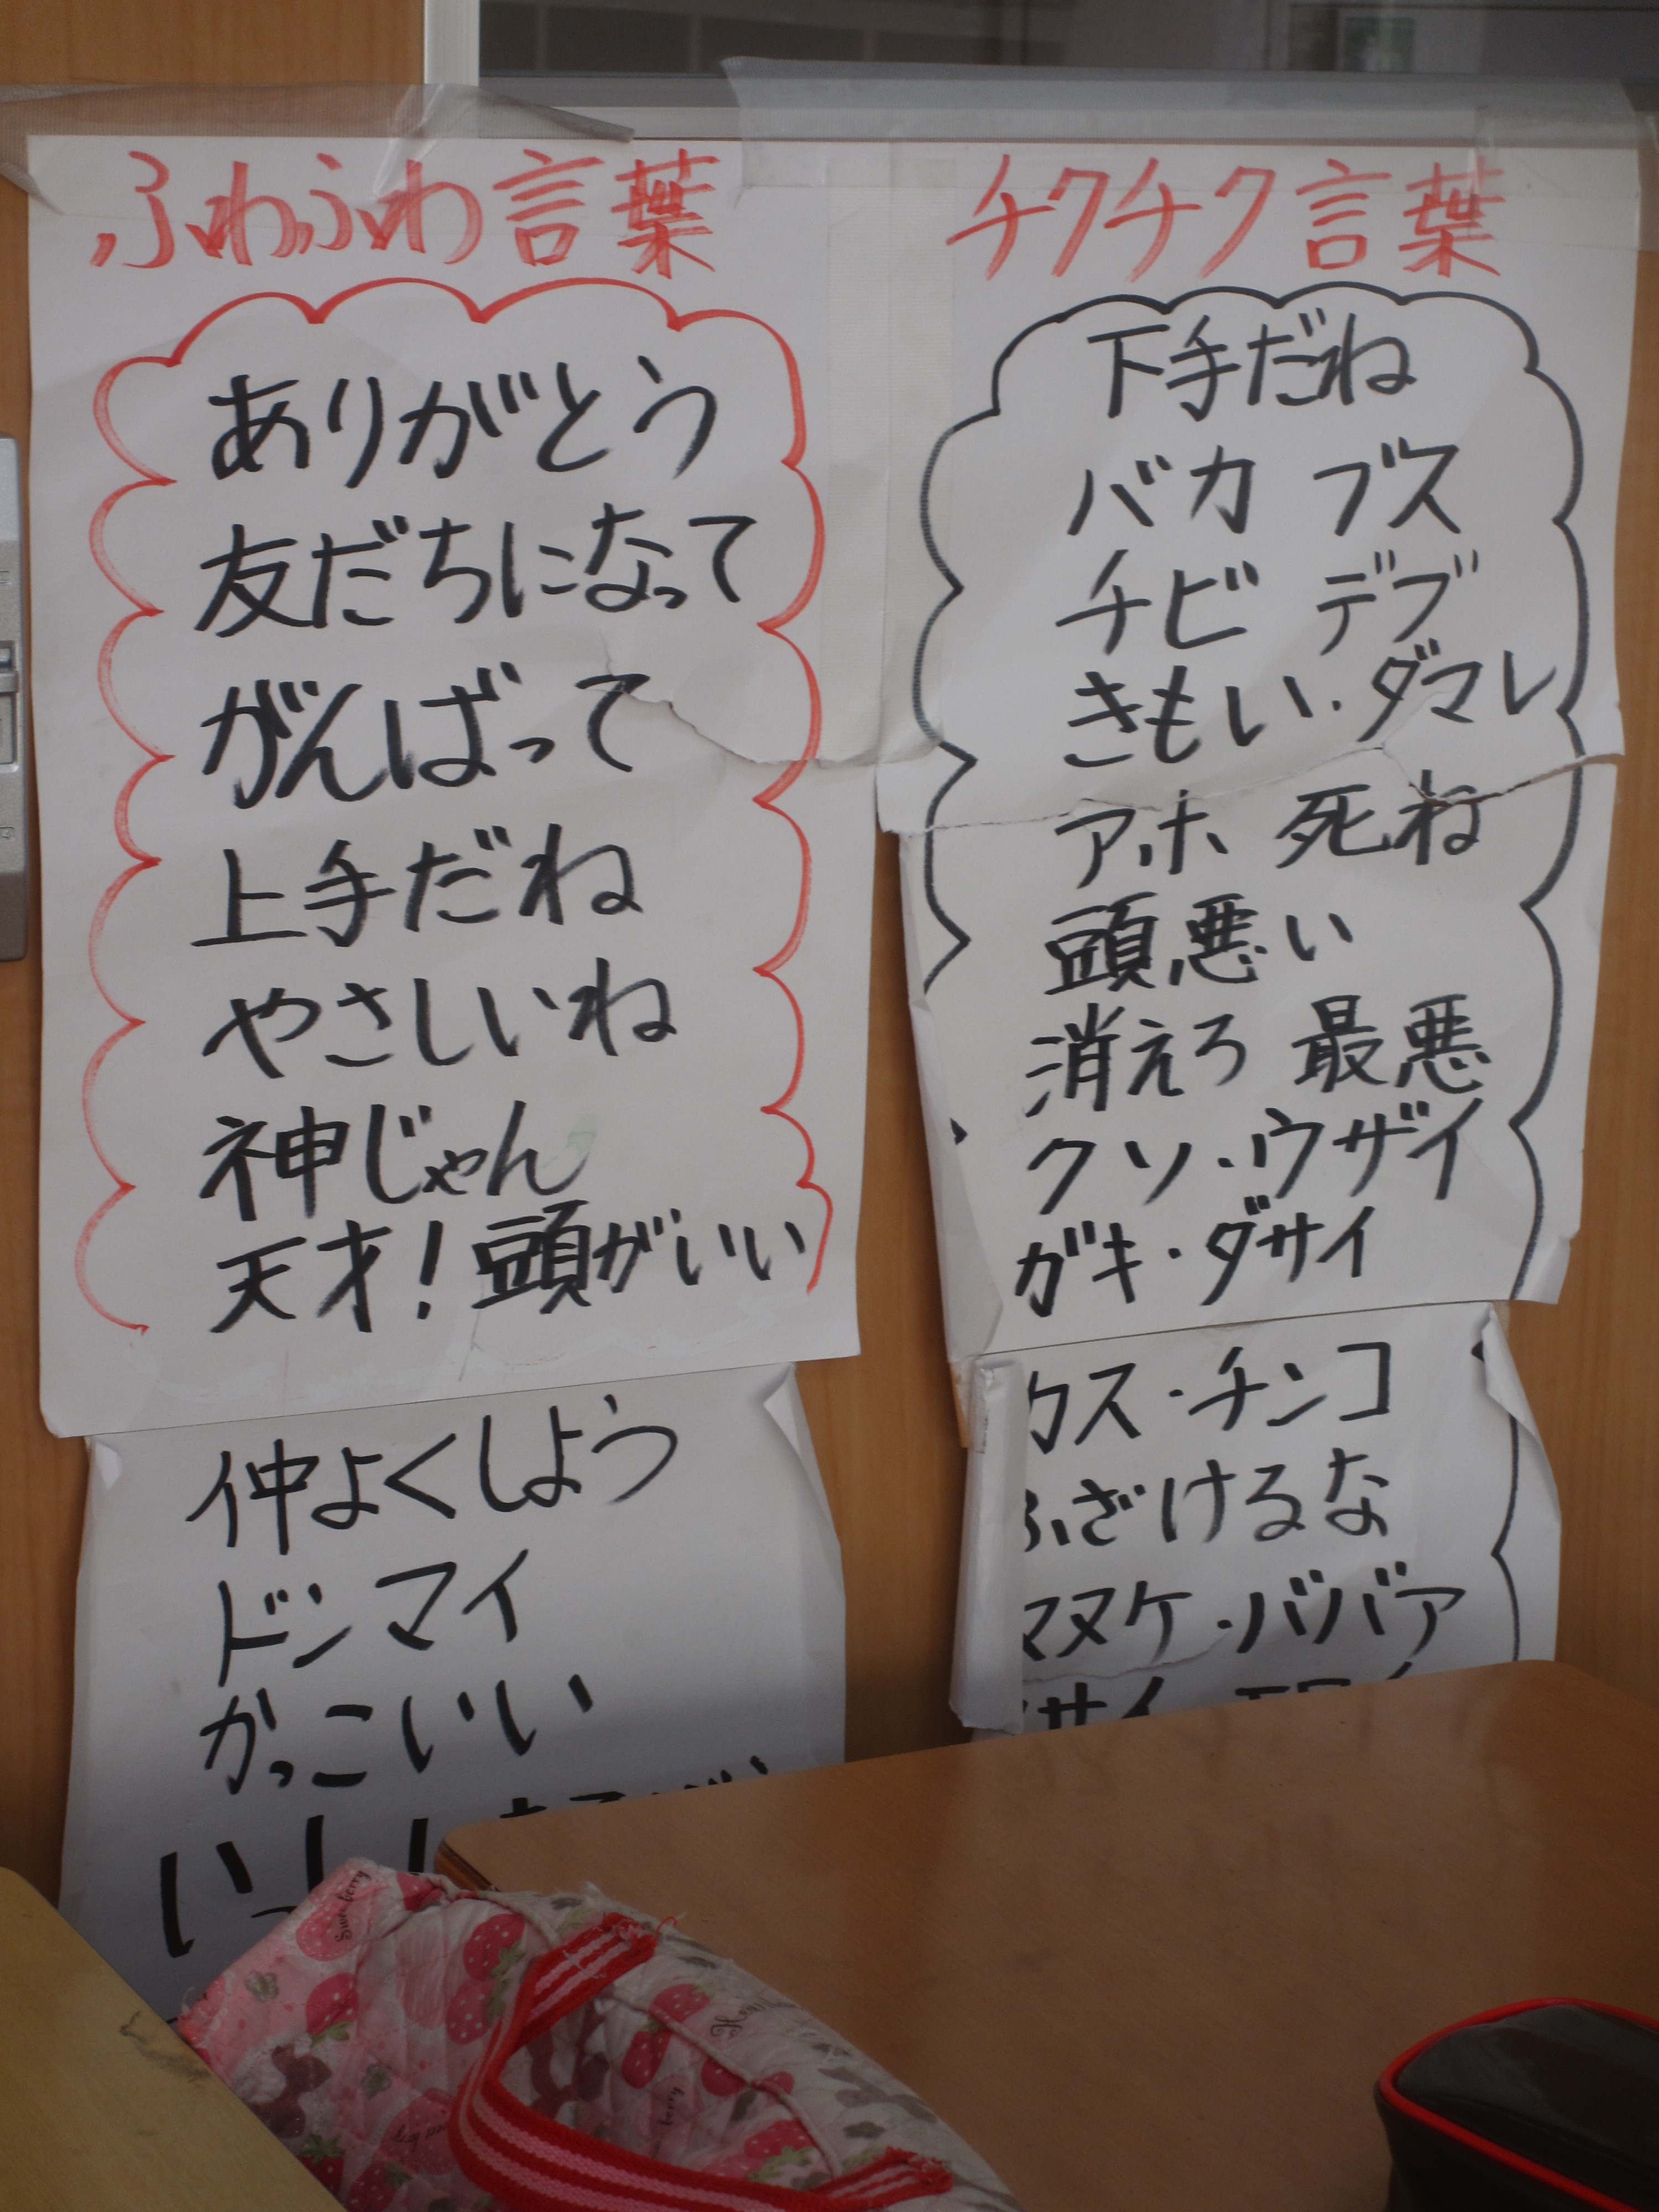 ふわふわ言葉
ありがとう
友だちになって
がんばって
上手だね
やさしいね
神じゃん
天才！頭がいい
仲よくしよう
ドンマイ
かっこいい
チクチク言葉
下手だね
バカ ブス
チビ デブ
きもい・ダマレ
アホ 死ね
頭悪い
消えろ 最悪
クソ・ウザイ
ガキ・ダサイ
カス・チンコ
ふざけるな
マヌケ・ババア